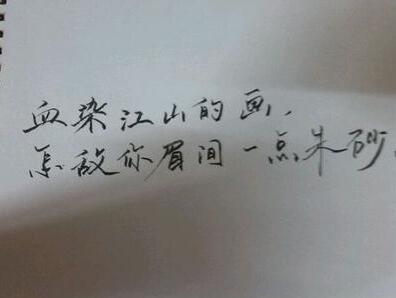 血染江山的画，
怎敌你眉间一点朱砂，